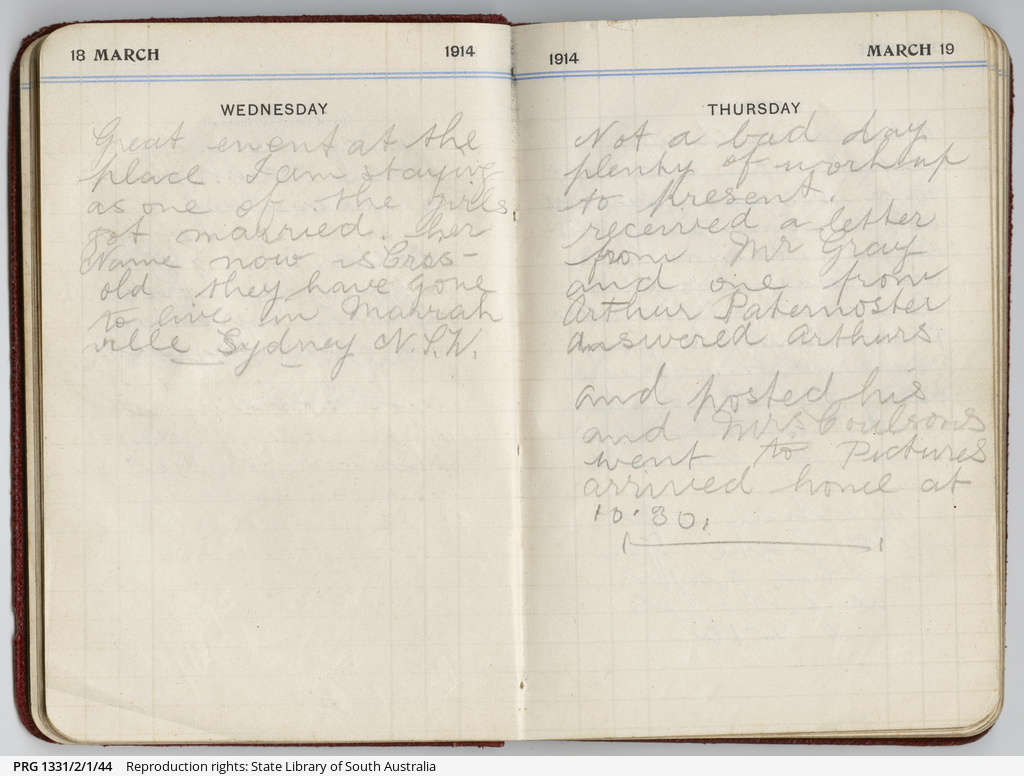 18 MARCH 1914
WEDNESDAY
Great event at the
place I am staying
as one of the Girls
got married. her
Name now is Cros-
old they have gone
to live in Marrah
ville Sydney N.S.W.
1914 MARCH 19
THURSDAY
Not a bad day
plenty of work up
to present.
received a letter
from Mr Gray
and one from
Arthur Paternoster
answered Arthurs
and posted his
and Mrs Coulsons
went to Pictures
arrived home at
10.30.
PRG 1331/2/1/44 Reproduction rights: State Library of South Australia